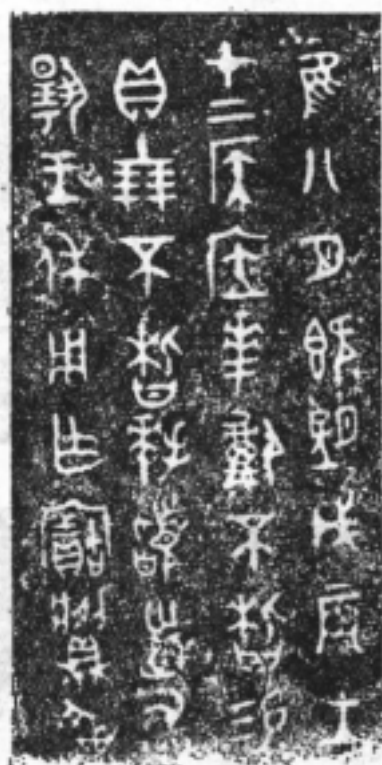 隹八月既望戊辰王
才上侯应𠦪祼不栺易
貝十朋不栺拜𩒨首敢
揚王休用乍寶𪔂彝